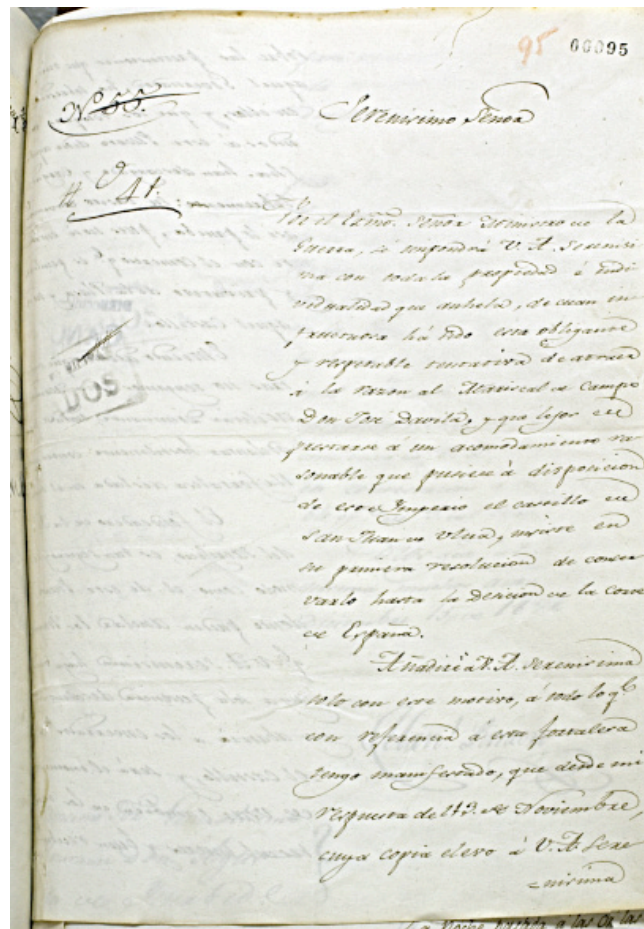 95 00095
N.º 55.
Serenisimo Señor
Nº 41.
Por el Exmo. Señor Ministro de la
Guerra, se impondrá V. A. Serenisi
ma con toda la propiedad é indi
vidualidad que anhela, de cuan in
fructuosa há sido esta obligante
y respetable tentativa de atraer
á la razon al Mariscal de Campo
Don José Davila, y que lejos de
prestarse á un acomodamiento ra
sonable que pusiese á disposicion
de este Imperio el castillo de
San Juan de Ulua, insiste en
su primera resolucion de conser
varlo hasta la desicion de la corte
de España.
Añadiré a V. A. Serenisima
solo con este motivo, á todo lo q.e
con referencia á esta fortaleza
tengo manifestado, que desde mi
respuesta de 19. de Noviembre,
cuya copia elevo á V. A. Sere
nisima
DOS